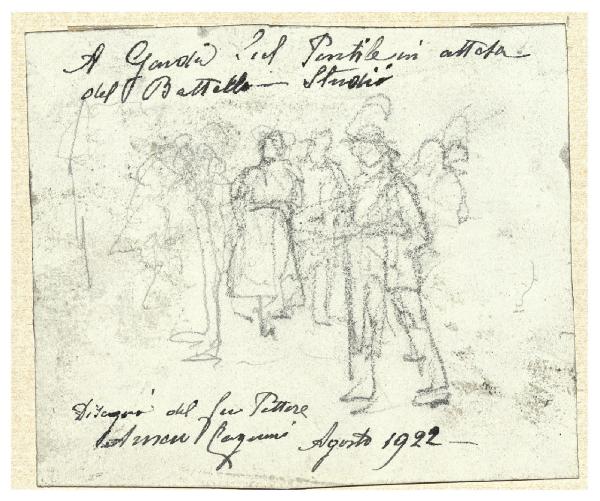 A Garda sul Pontile in attesa
del Battello - Studio
Disegno del fu Pittore
Agosto 1922 -